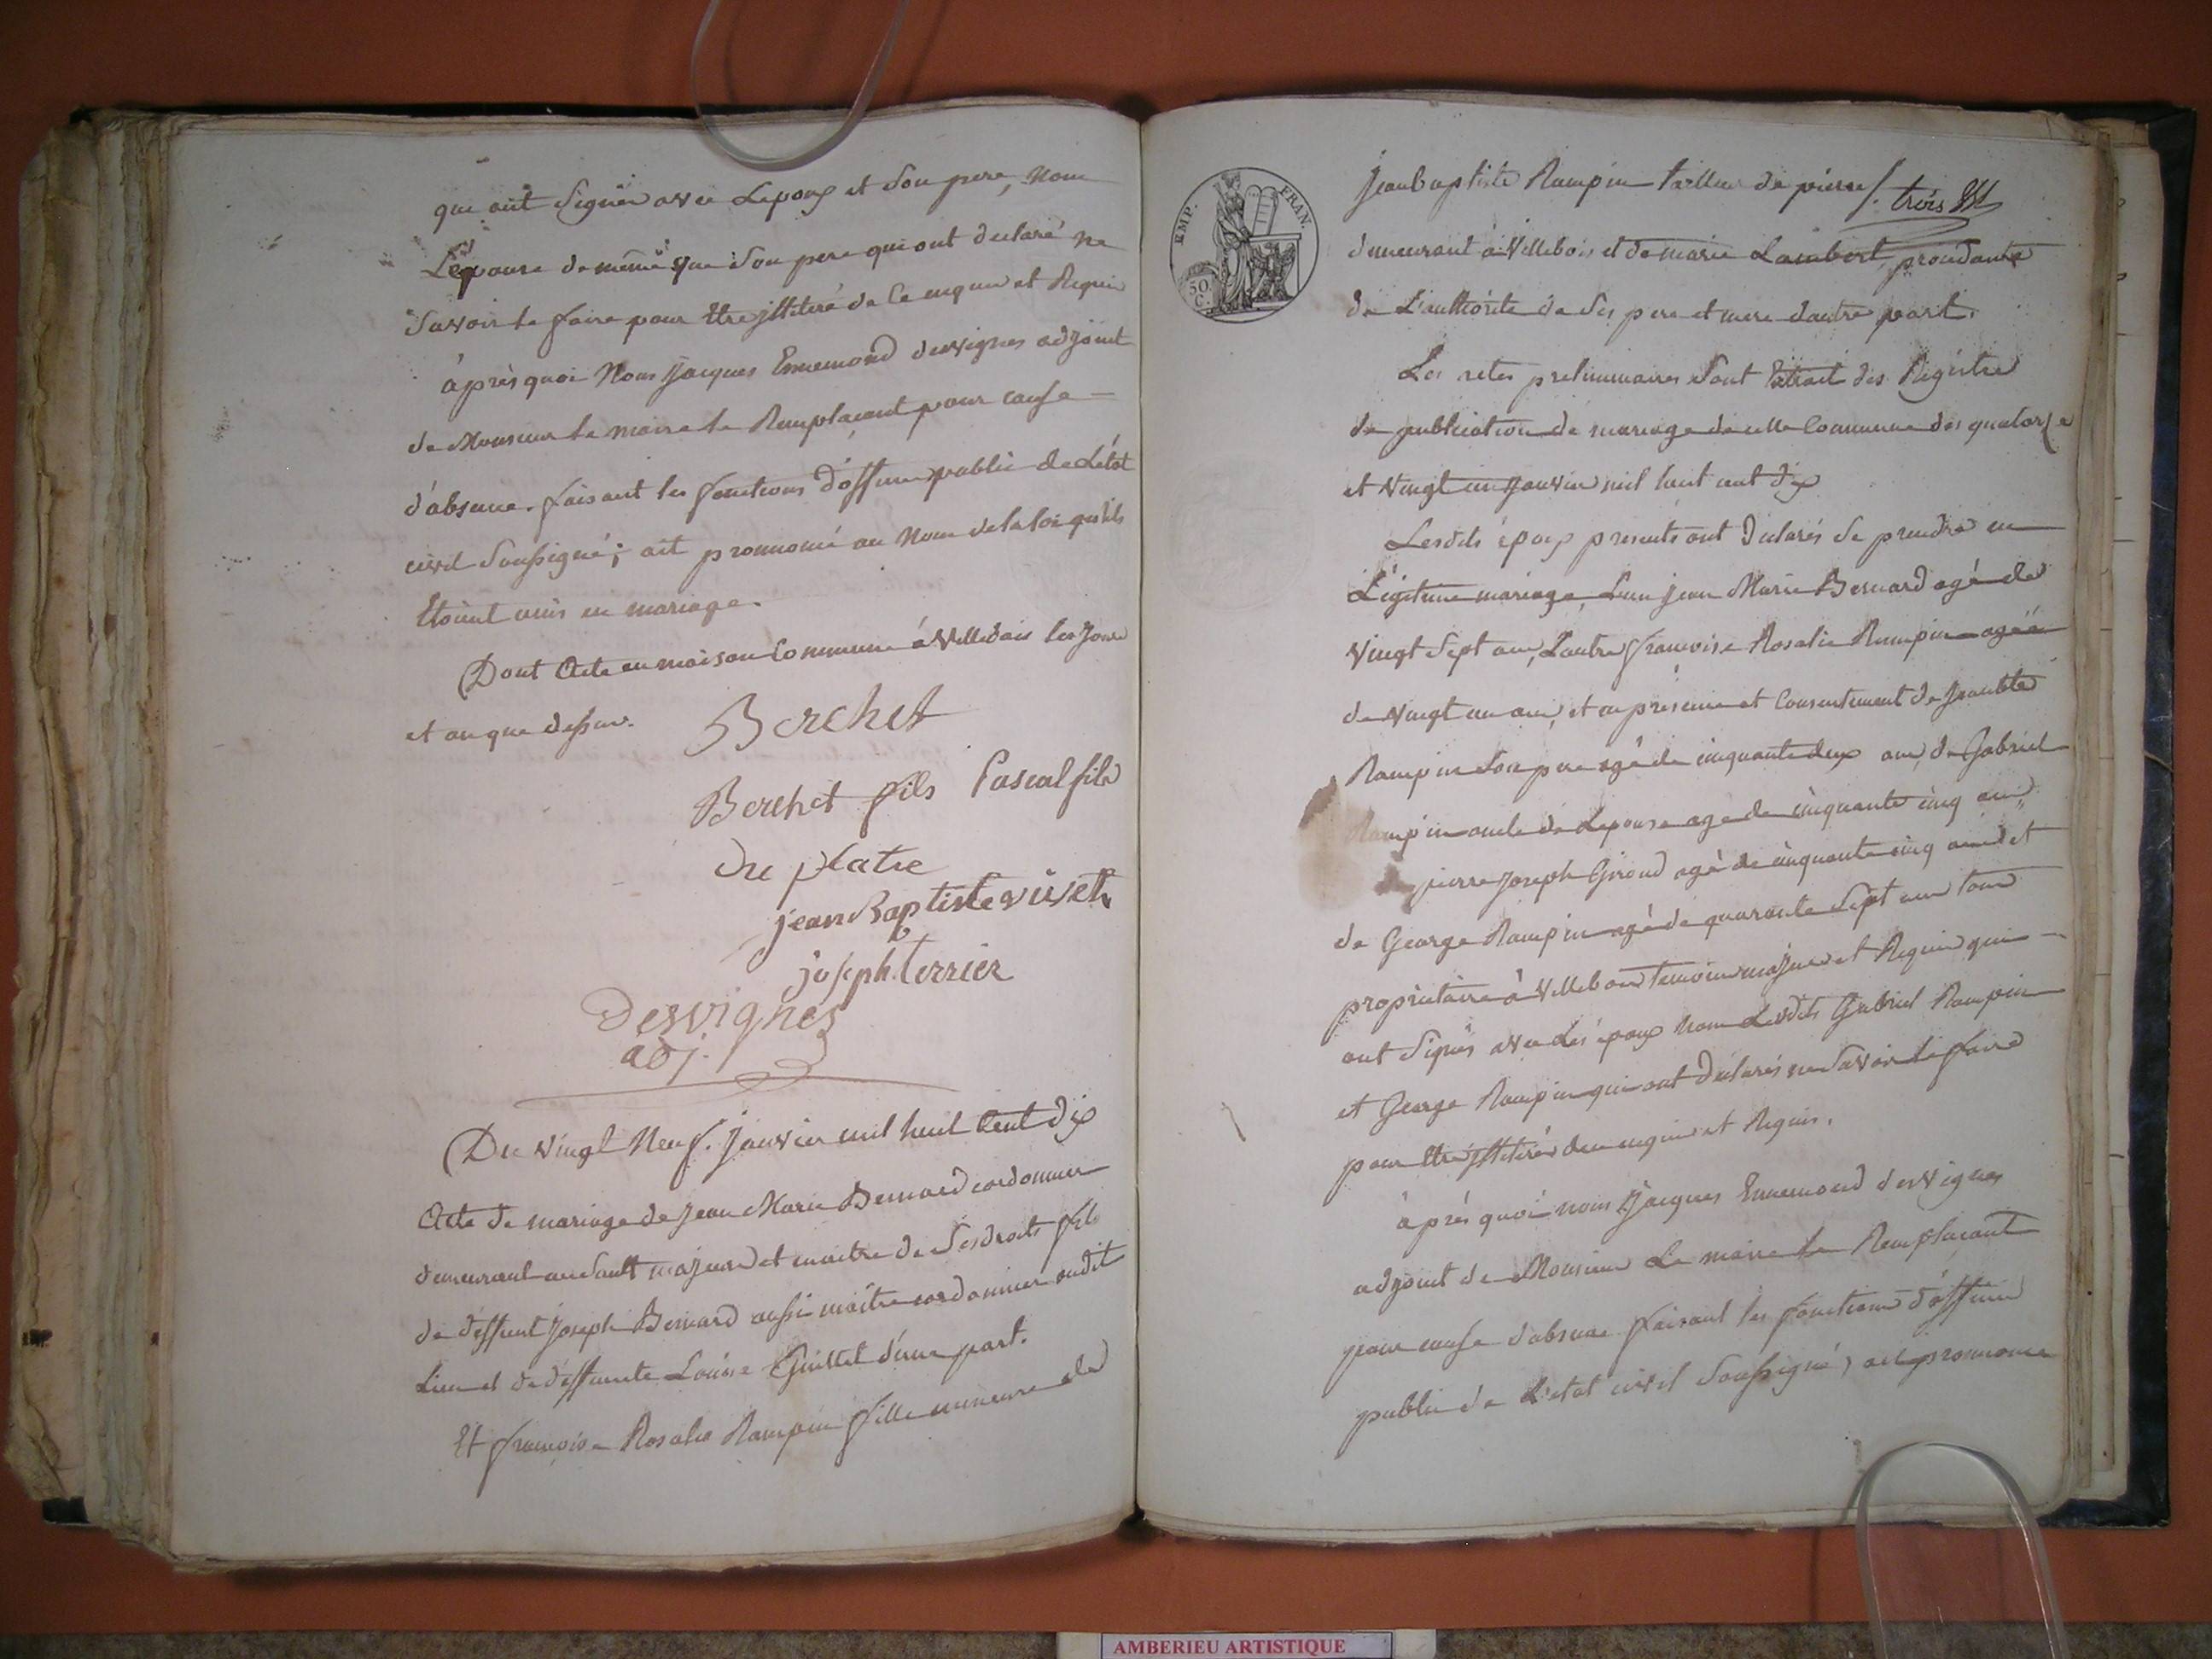 qui ont signé avec Lepoux et son pere, non
L'épouse de même que son pere qui ont declaré ne
savoir le faire pour être jlliteré de ce enquis et Requis
après quoi Nous Jacques Ennemond desvignes adjoint
de Monsieur le maire le Remplaçant pour cause
d'absence. faisant les fonctions d'officier public de L'état
civil soussigné; ait prononcé au Nom de la loi qu'ils
Etoient unis en mariage.
Dont Acte en maison Commune à Villebois les Jour
et an que dessus.
Berchet
Berchet fils Pascal fils
Du platre
jean Baptiste vivet
joseph terrier
Desvignes
adj.
Du vingt Neuf. Janvier mil huit Cent dix
Acte de mariage de Jean Marie Bernard cordonnier
demeurant au Sault majeur et maitre de ses droits fils
de deffunt Joseph Bernard aussi maître cordonnier audit
Lieu et de deffunte Louise Guillet d'une part.
Et françoise Rosalie Rampin fille mineure de
EMP. FRAN.
50 C.
Jean baptiste Rampin tailleur de pierre/. trois
demeurant à Villebois et de marie Lambert, procedante
de L'authorité de ses pere et mere dautre part.
Les actes preliminaires sont Extrait des Registre
de publication de mariage de cette Commune des quatorze
et vingt un Janvier mil huit cent dix
Lesdits époux presents ont declarés se prendre en
Légitime mariage, Lun jean Marie Bernard agé de
vingt sept ans, Lautre françoise Rosalie Rampin agée
de vingt un ans, et en présence et Consentement de Jean bte
Rampin son pere agé de cinquante deux ans, de Gabriel
Rampin oncle de Lepouse age de cinquante cinq ans,
pierre Joseph Giroud agé de cinquante cinq ans et
de George Rampin agé de quarante sept ans tous
propriétaire à Villebois temoins majeurs et Requis qui
ont signés avec les époux non Lesdits Gabriel Rampin
et George Rampin qui ont déclarés ne savoir le faire
pour être jllitéré de ce enquis et Requis.
après quoi nous Jacques Ennemond desvignes
adjoint de Monsieur Le maire le Remplaçant
pour cause d'absence faisant les fonctions d'officier
public de L'état civil soussigné, ait prononce
AMBERIEU ARTISTIQUE